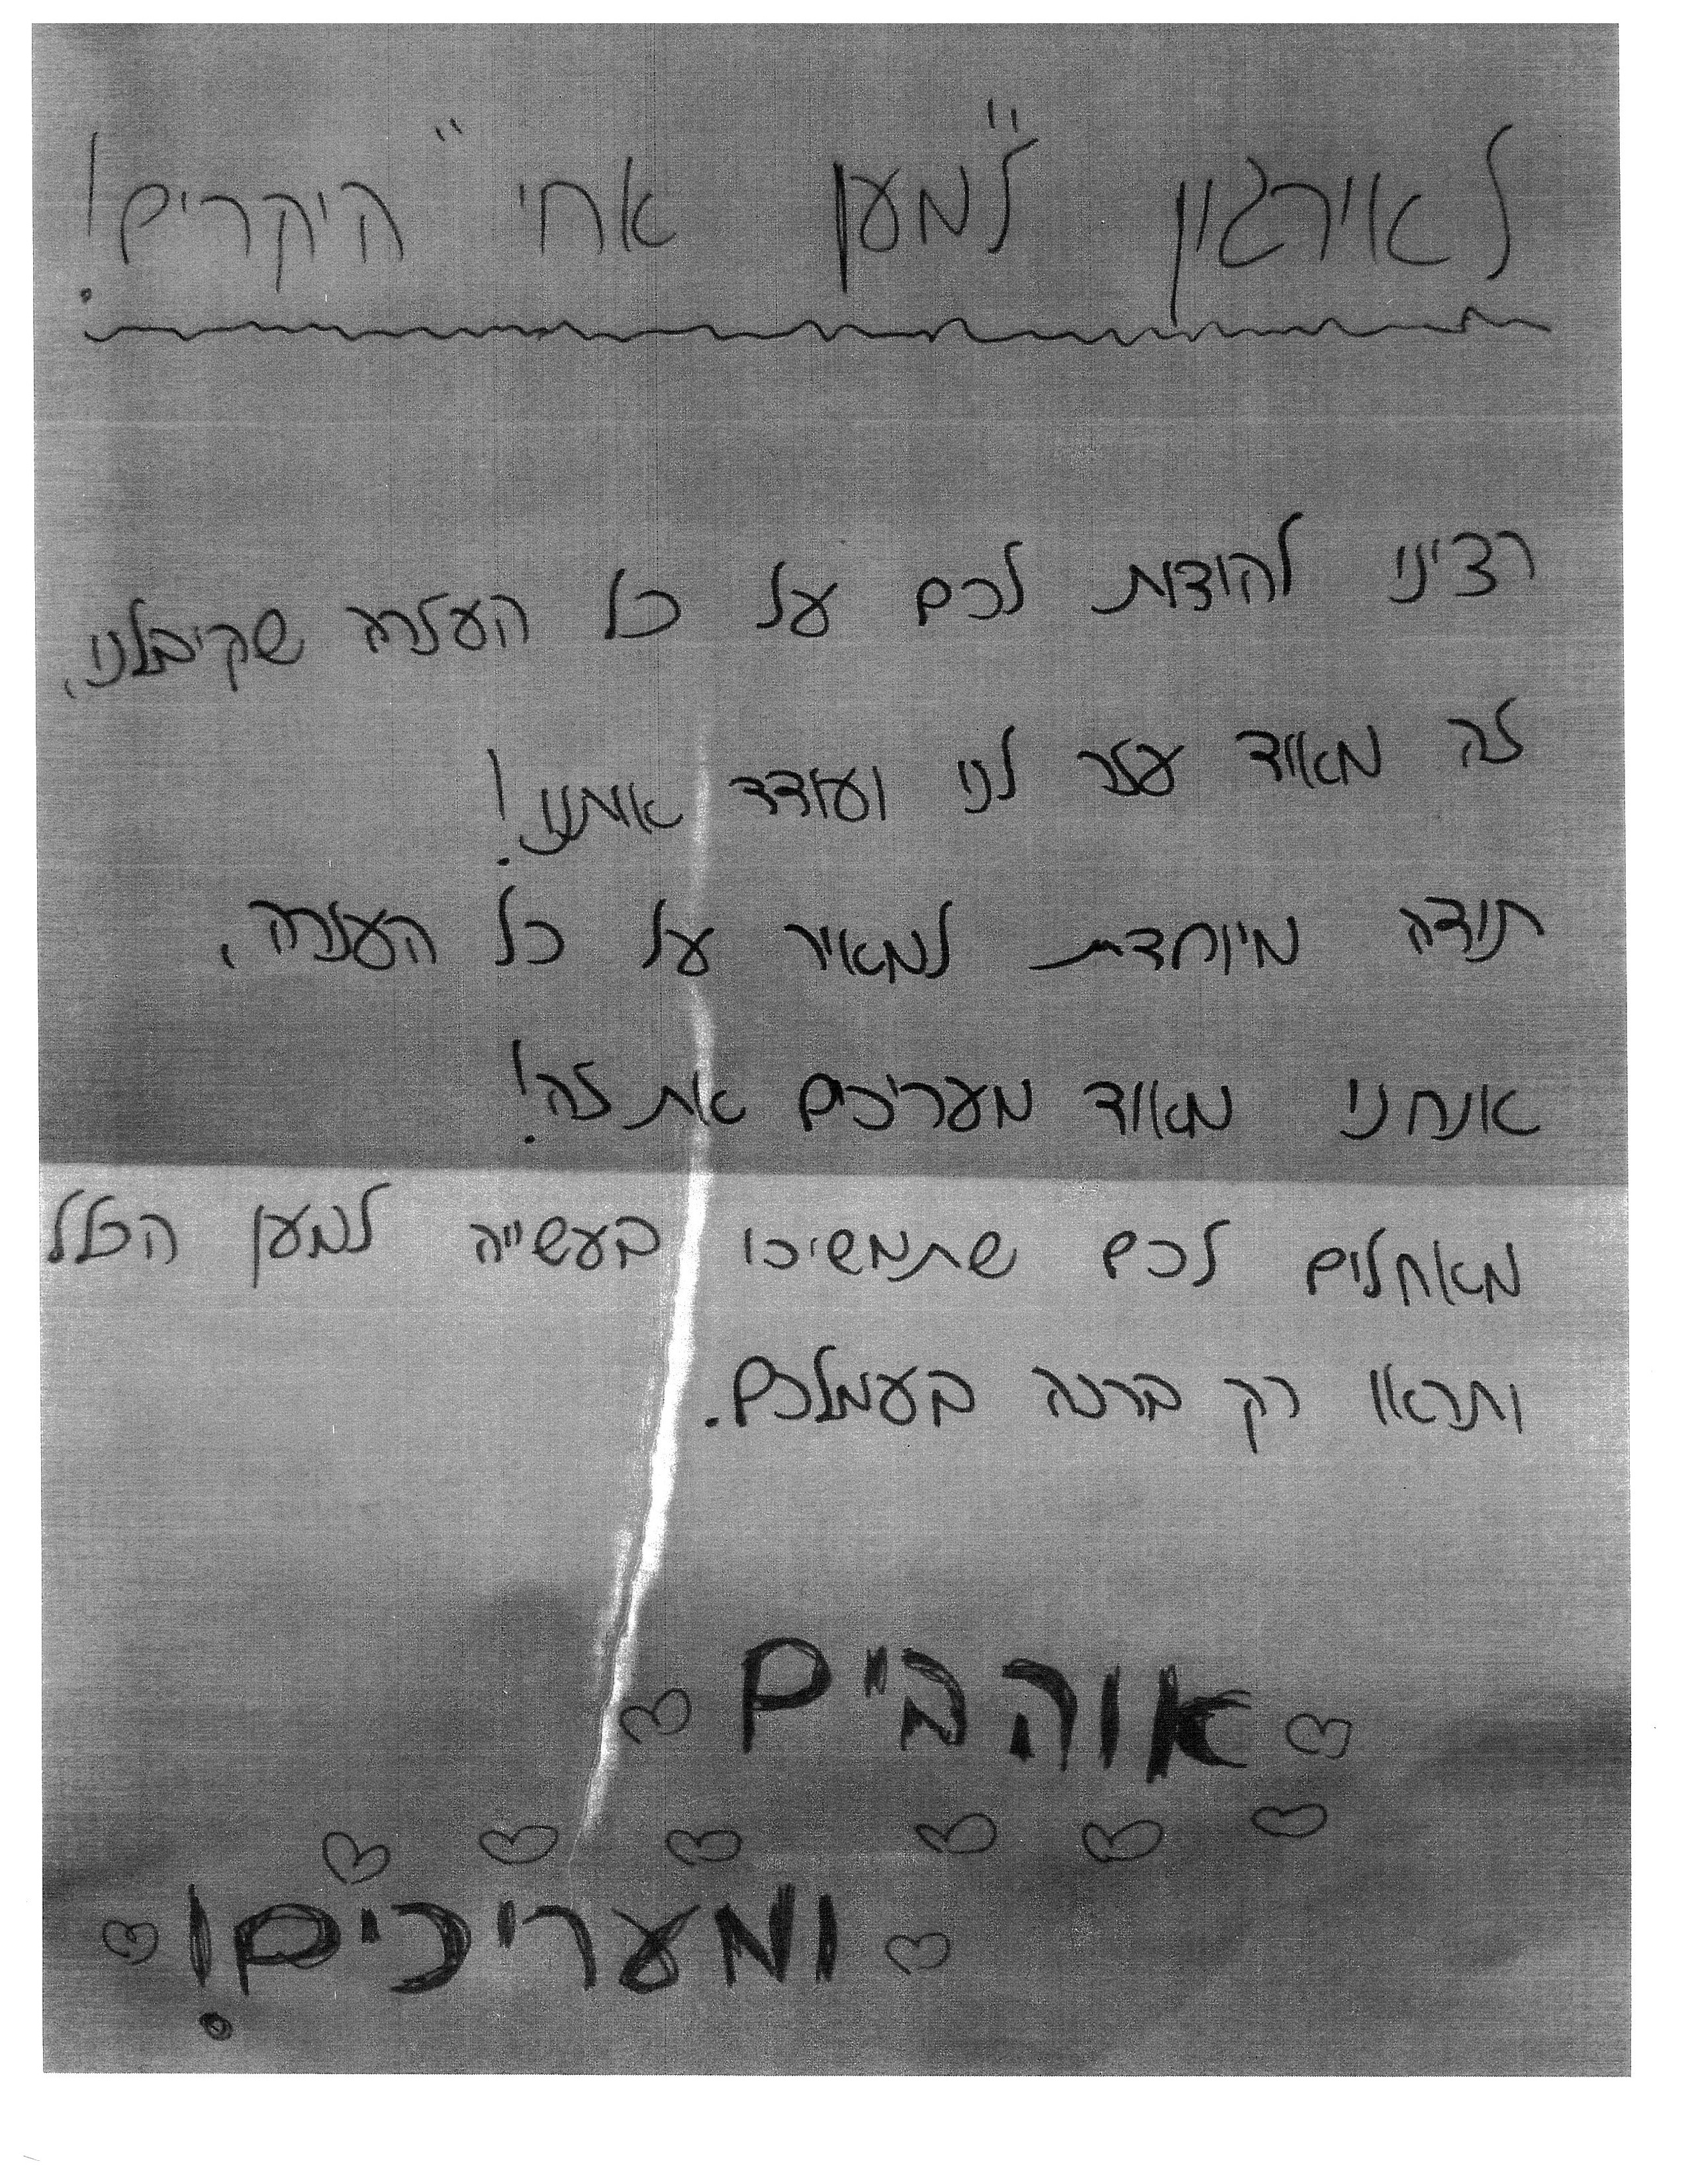 לאירגון "למען אחי" היקרים!
רצינו להודות לכם על כל העזרה שקיבלנו,
זה מאוד עזר לנו ועודד אותנו!
תודה מיוחדת למאיר על כל העזרה,
אנחנו מאוד מעריכים את זה!
מאחלים לכם שתמשיכו בעשייה למען הכלל
ותראו רק ברכה בעמלכם.
אוהבים
ומעריכים!